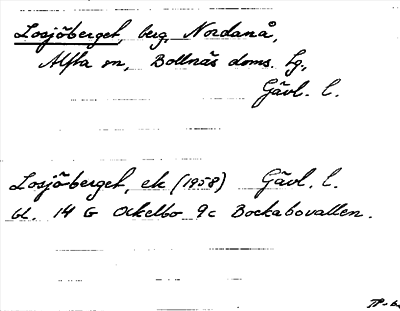 Losjöberget, berg, Nordanå,
Alfta sn, Bollnäs doms. tg.,
Gävl. l.
Losjöberget, ek (1958) Gävl. l.
bl. 14 G Ockelbo 9c Bockabovallen.